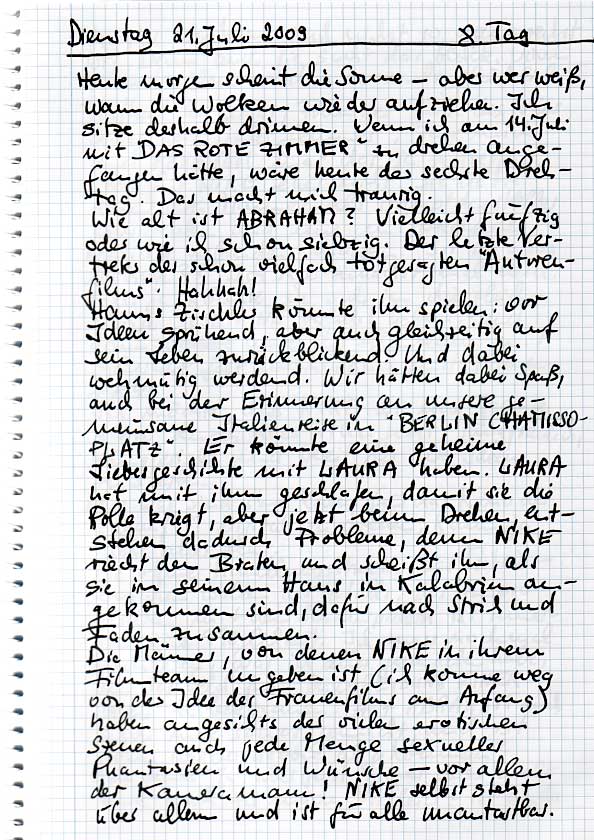 Dienstag 21. Juli 2009 8. Tag
Heute morgen scheint die Sonne – aber wer weiß,
wann die Wolken wieder aufziehen. Ich
sitze deshalb drinnen. Wenn ich am 14. Juli
mit DAS ROTE ZIMMER" zu drehen ange-
fangen hätte, wäre heute der sechste Dreh-
tag. Das macht mich traurig.
Wie alt ist ABRAHAM? Vielleicht fünfzig
oder wie ich schon siebzig. Der letzte Ver-
treter des schon vielfach totgesagten "Autoren-
films". Hahhah!
Hanns Zischler könnte ihn spielen: vor
Ideen sprühend, aber auch gleichzeitig auf
sein Leben zurückblickend. Und dabei
wehmütig werdend. Wir hätten dabei Spaß,
auch bei der Erinnerung an unsere ge-
meinsame Italienreise in "BERLIN CHAMISSO-
PLATZ". Er könnte eine geheime
Liebesgeschichte mit LAURA haben. LAURA
hat mit ihm geschlafen, damit sie die
Rolle kriegt, aber jetzt beim Drehen, ent-
stehen dadurch Probleme, denn NIKE
riecht den Braten und scheißt ihn, als
sie in seinem Haus in Kalabrien an-
gekommen sind, dafür nach Strich und
Faden zusammen.
Die Männer, von denen NIKE in ihrem
Filmteam umgeben ist (ich komme weg
von der Idee des Frauenfilms am Anfang)
haben angesichts der vielen erotischen
Szenen auch jede Menge sexueller
Phantasien und Wünsche – vor allem
der Kameramann! NIKE selbst steht
über allem und ist für alle unantastbar.